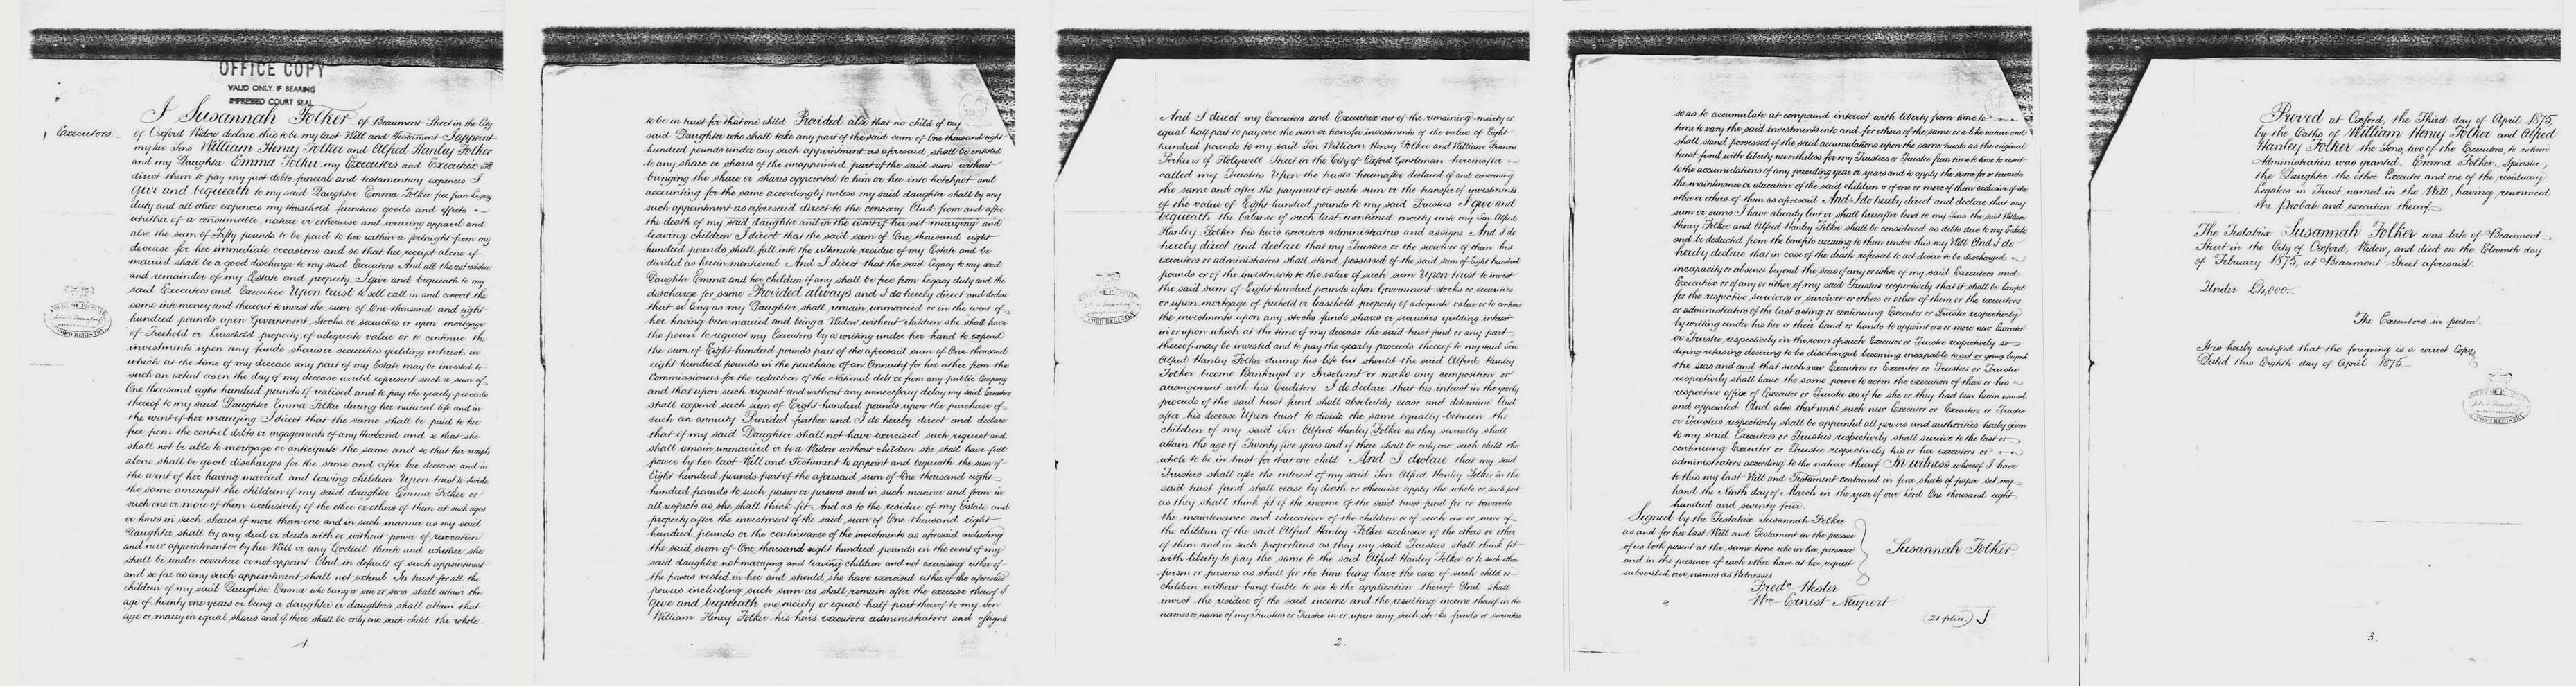 OFFICE COPY
VALID ONLY IF BEARING
IMPRESSED COURT SEAL
Executors.
I Susannah Folker of Beaumont Street in the City
of Oxford Widow declare this to be my last Will and Testament I appoint
my two Sons William Henry Folker and Alfred Hanley Folker
and my Daughter Emma Folker my Executors and Executrix and
direct them to pay my just debts funeral and testamentary expences I
give and bequeath to my said Daughter Emma Folker free from Legacy
duty and all other expences my Household furniture goods and effects
whether of a consumable nature or otherwise and wearing apparel and
also the sum of Fifty pounds to be paid to her within a fortnight from my
decease for her immediate occasions and so that her receipt alone if
married shall be a good discharge to my said Executors And all the rest residue
and remainder of my Estate and property I give and bequeath to my
said Executors and Executrix Upon trust to sell call in and convert the
same into money and thereout to invest the sum of One thousand and eight
hundred pounds upon Government Stocks or securities or upon mortgage
of Freehold or Leasehold property of adequate value or to continue the
investments upon any funds shares or securities yielding interest in
which at the time of my decease any part of my Estate may be invested to
such an extent as on the day of my decease would represent such a sum of
One thousand eight hundred pounds if realised and to pay the yearly proceeds
thereof to my said Daughter Emma Folker during her natural life and in
the event of her marrying I direct that the same shall be paid to her
free from the control debts or engagements of any Husband and so that she
shall not be able to mortgage or anticipate the same and so that her receipts
alone shall be good discharges for the same and after her decease and in
the event of her having married and leaving children Upon trust to divide
the same amongst the children of my said daughter Emma Folker or
such one or more of them exclusively of the other or others of them at such ages
or times in such shares if more than one and in such manner as my said
Daughter shall by any deed or deeds with or without power of revocation
and new appointment or by her Will or any Codicil thereto and whether she
shall be under coverture or not appoint And in default of such appointment
and so far as any such appointment shall not extend In trust for all the
children of my said Daughter Emma who being a son or sons shall attain the
age of twenty one years or being a daughter or daughters shall attain that
age or marry in equal shares and if there shall be only one such child the whole
1.
to be in trust for that one child Provided also that no child of my
said Daughter who shall take any part of the said sum of One thousand eight
hundred pounds under any such appointment as aforesaid shall be entitled
to any share or shares of the unappointed part of the said sum without
bringing the share or shares appointed to him or her into hotchpot and
accounting for the same accordingly unless my said daughter shall by any
such appointment as aforesaid direct to the contrary And from and after
the death of my said daughter and in the event of her not marrying and
leaving children I direct that the said sum of One thousand eight
hundred pounds shall fall into the ultimate residue of my Estate and be
divided as herein mentioned And I direct that the said Legacy to my said
Daughter Emma and her children if any shall be free from Legacy duty and the
discharge for same Provided always and I do hereby direct and declare
that so long as my Daughter shall remain unmarried or in the event of
her having been married and being a Widow without children she shall have
the power to request my Executors by a writing under her hand to expend
the sum of Eight hundred pounds part of the aforesaid sum of One thousand
eight hundred pounds in the purchase of an Annuity for her either from the
Commissioners for the reduction of the National debt or from any public Company
and that upon such request and without any unnecessary delay my said Executors
shall expend such sum of Eight hundred pounds upon the purchase of
such an annuity Provided further and I do hereby direct and declare
that if my said Daughter shall not have exercised such request and
shall remain unmarried or be a Widow without children she shall have full
power by her last Will and Testament to appoint and bequeath the sum of
Eight hundred pounds part of the aforesaid sum of One thousand eight
hundred pounds to such person or persons and in such manner and form in
all respects as she shall think fit And as to the residue of my Estate and
property after the investment of the said sum of One thousand eight
hundred pounds or the continuance of the investments as aforesaid including
the said sum of One thousand eight hundred pounds in the event of my
said daughter not marrying and leaving children and not exercising either of
the powers vested in her and should she have exercised either of the aforesaid
powers including such sum as shall remain after the exercise thereof I
give and bequeath one moiety or equal half part thereof to my Son
William Henry Folker his heirs executors administrators and assigns
And I direct my Executors and Executrix out of the remaining moiety or
equal half part to pay over the sum or transfer investments of the value of Eight
hundred pounds to my said Son William Henry Folker and William Francis
Perkins of Holywell Street in the City of Oxford Gentleman hereinafter
called my Trustees Upon the trusts hereinafter declared of and concerning
the same and after the payment of such sum or the transfer of investments
of the value of Eight hundred pounds to my said Trustees I give and
bequeath the balance of such last mentioned moiety unto my Son Alfred
Hanley Folker his heirs executors administrators and assigns And I do
hereby direct and declare that my Trustees or the survivor of them his
executors or administrators shall stand possessed of the said sum of Eight hundred
pounds or of the investments to the value of such sum Upon trust to invest
the said sum of Eight hundred pounds upon Government stocks or securities
or upon mortgage of freehold or leasehold property of adequate value or to continue
the investments upon any stocks funds shares or securities yielding interest
in or upon which at the time of my decease the said trust fund or any part
thereof may be invested and to pay the yearly proceeds thereof to my said Son
Alfred Hanley Folker during his life but should the said Alfred Hanley
Folker become Bankrupt or Insolvent or make any composition or
arrangement with his Creditors I do declare that his interest in the yearly
proceeds of the said trust fund shall absolutely cease and determine And
after his decease Upon trust to divide the same equally between the
children of my said Son Alfred Hanley Folker as they severally shall
attain the age of Twenty five years and if there shall be only one such child the
whole to be in trust for that one child And I declare that my said
Trustees shall after the interest of my said Son Alfred Hanley Folker in the
said trust fund shall cease by death or otherwise apply the whole or such part
as they shall think fit of the income of the said trust fund for or towards
the maintenance and education of the children or of such one or more of
the children of the said Alfred Hanley Folker exclusive of the others or other
of them and in such proportions as they my said Trustees shall think fit
with liberty to pay the same to the said Alfred Hanley Folker or to such other
person or persons as shall for the time being have the care of such child or
children without being liable to see to the application thereof And shall
invest the residue of the said income and the resulting income thereof in the
names or name of my Trustees or Trustee in or upon any such stocks funds or securities
2.
so as to accumulate at compound interest with liberty from time to
time to vary the said investments into and for others of the same or a like nature and
shall stand possessed of the said accumulations upon the same trusts as the original
trust fund with liberty nevertheless for my Trustees or Trustee from time to time to resort
to the accumulations of any preceding year or years and to apply the same for or towards
the maintenance or education of the said children or of one or more of them exclusive of the
other or others of them as aforesaid And I do hereby direct and declare that any
sum or sums I have already lent or shall hereafter lend to my Sons the said William
Henry Folker and Alfred Hanley Folker shall be considered as debts due to my Estate
and be deducted from the benefits accruing to them under this my Will And I do
hereby declare that in case of the death refusal to act desire to be discharged
incapacity or absence beyond the seas of any or either of my said Executors and
Executrix or of any or either of my said Trustees respectively that it shall be lawful
for the respective survivors or survivor or others or other of them or the executors
or administrators of the last acting or continuing Executor or Trustee respectively
by writing under his her or their hand or hands to appoint one or more new Executor
or Trustee respectively in the room of such Executor or Trustee respectively so
dying refusing desiring to be discharged becoming incapable to act or going beyond
the seas and and that such new Executors or Executor or Trustees or Trustee
respectively shall have the same power to act in the execution of their or his
respective office of Executor or Trustee as if he she or they had been herein named
and appointed And also that until such new Executor or Executors or Trustee
or Trustees respectively shall be appointed all powers and authorities hereby given
to my said Executors or Trustees respectively shall survive to the last or
continuing Executor or Trustee respectively his or her executors or
administrators according to the nature thereof In witness whereof I have
to this my last Will and Testament contained in four sheets of paper set my
hand the Ninth day of March in the year of our Lord One thousand eight
hundred and seventy four.
Signed by the Testatrix Susannah Folker
as and for her last Will and Testament in the presence
of us both present at the same time who in her presence
and in the presence of each other have at her request
subscribed our names as Witnesses
Susannah Folker.
Fredc. Hester
Wm. Ernest Newport
(21 folios)
Proved at Oxford, the Third day of April 1875,
by the Oaths of William Henry Folker and Alfred
Hanley Folker the Sons, two of the Executors, to whom
Administration was granted. Emma Folker, Spinster,
the Daughter the other Executor and one of the residuary
legatees in Trust named in the Will, having renounced
the Probate and execution thereof.
The Testatrix Susannah Folker was late of Beaumont
Street in the City of Oxford, Widow, and died on the Eleventh day
of February 1875, at Beaumont Street aforesaid.
Under £4,000.
The Executors in person.
It is hereby certified that the foregoing is a correct Copy.
Dated this Eighth day of April 1875
3.